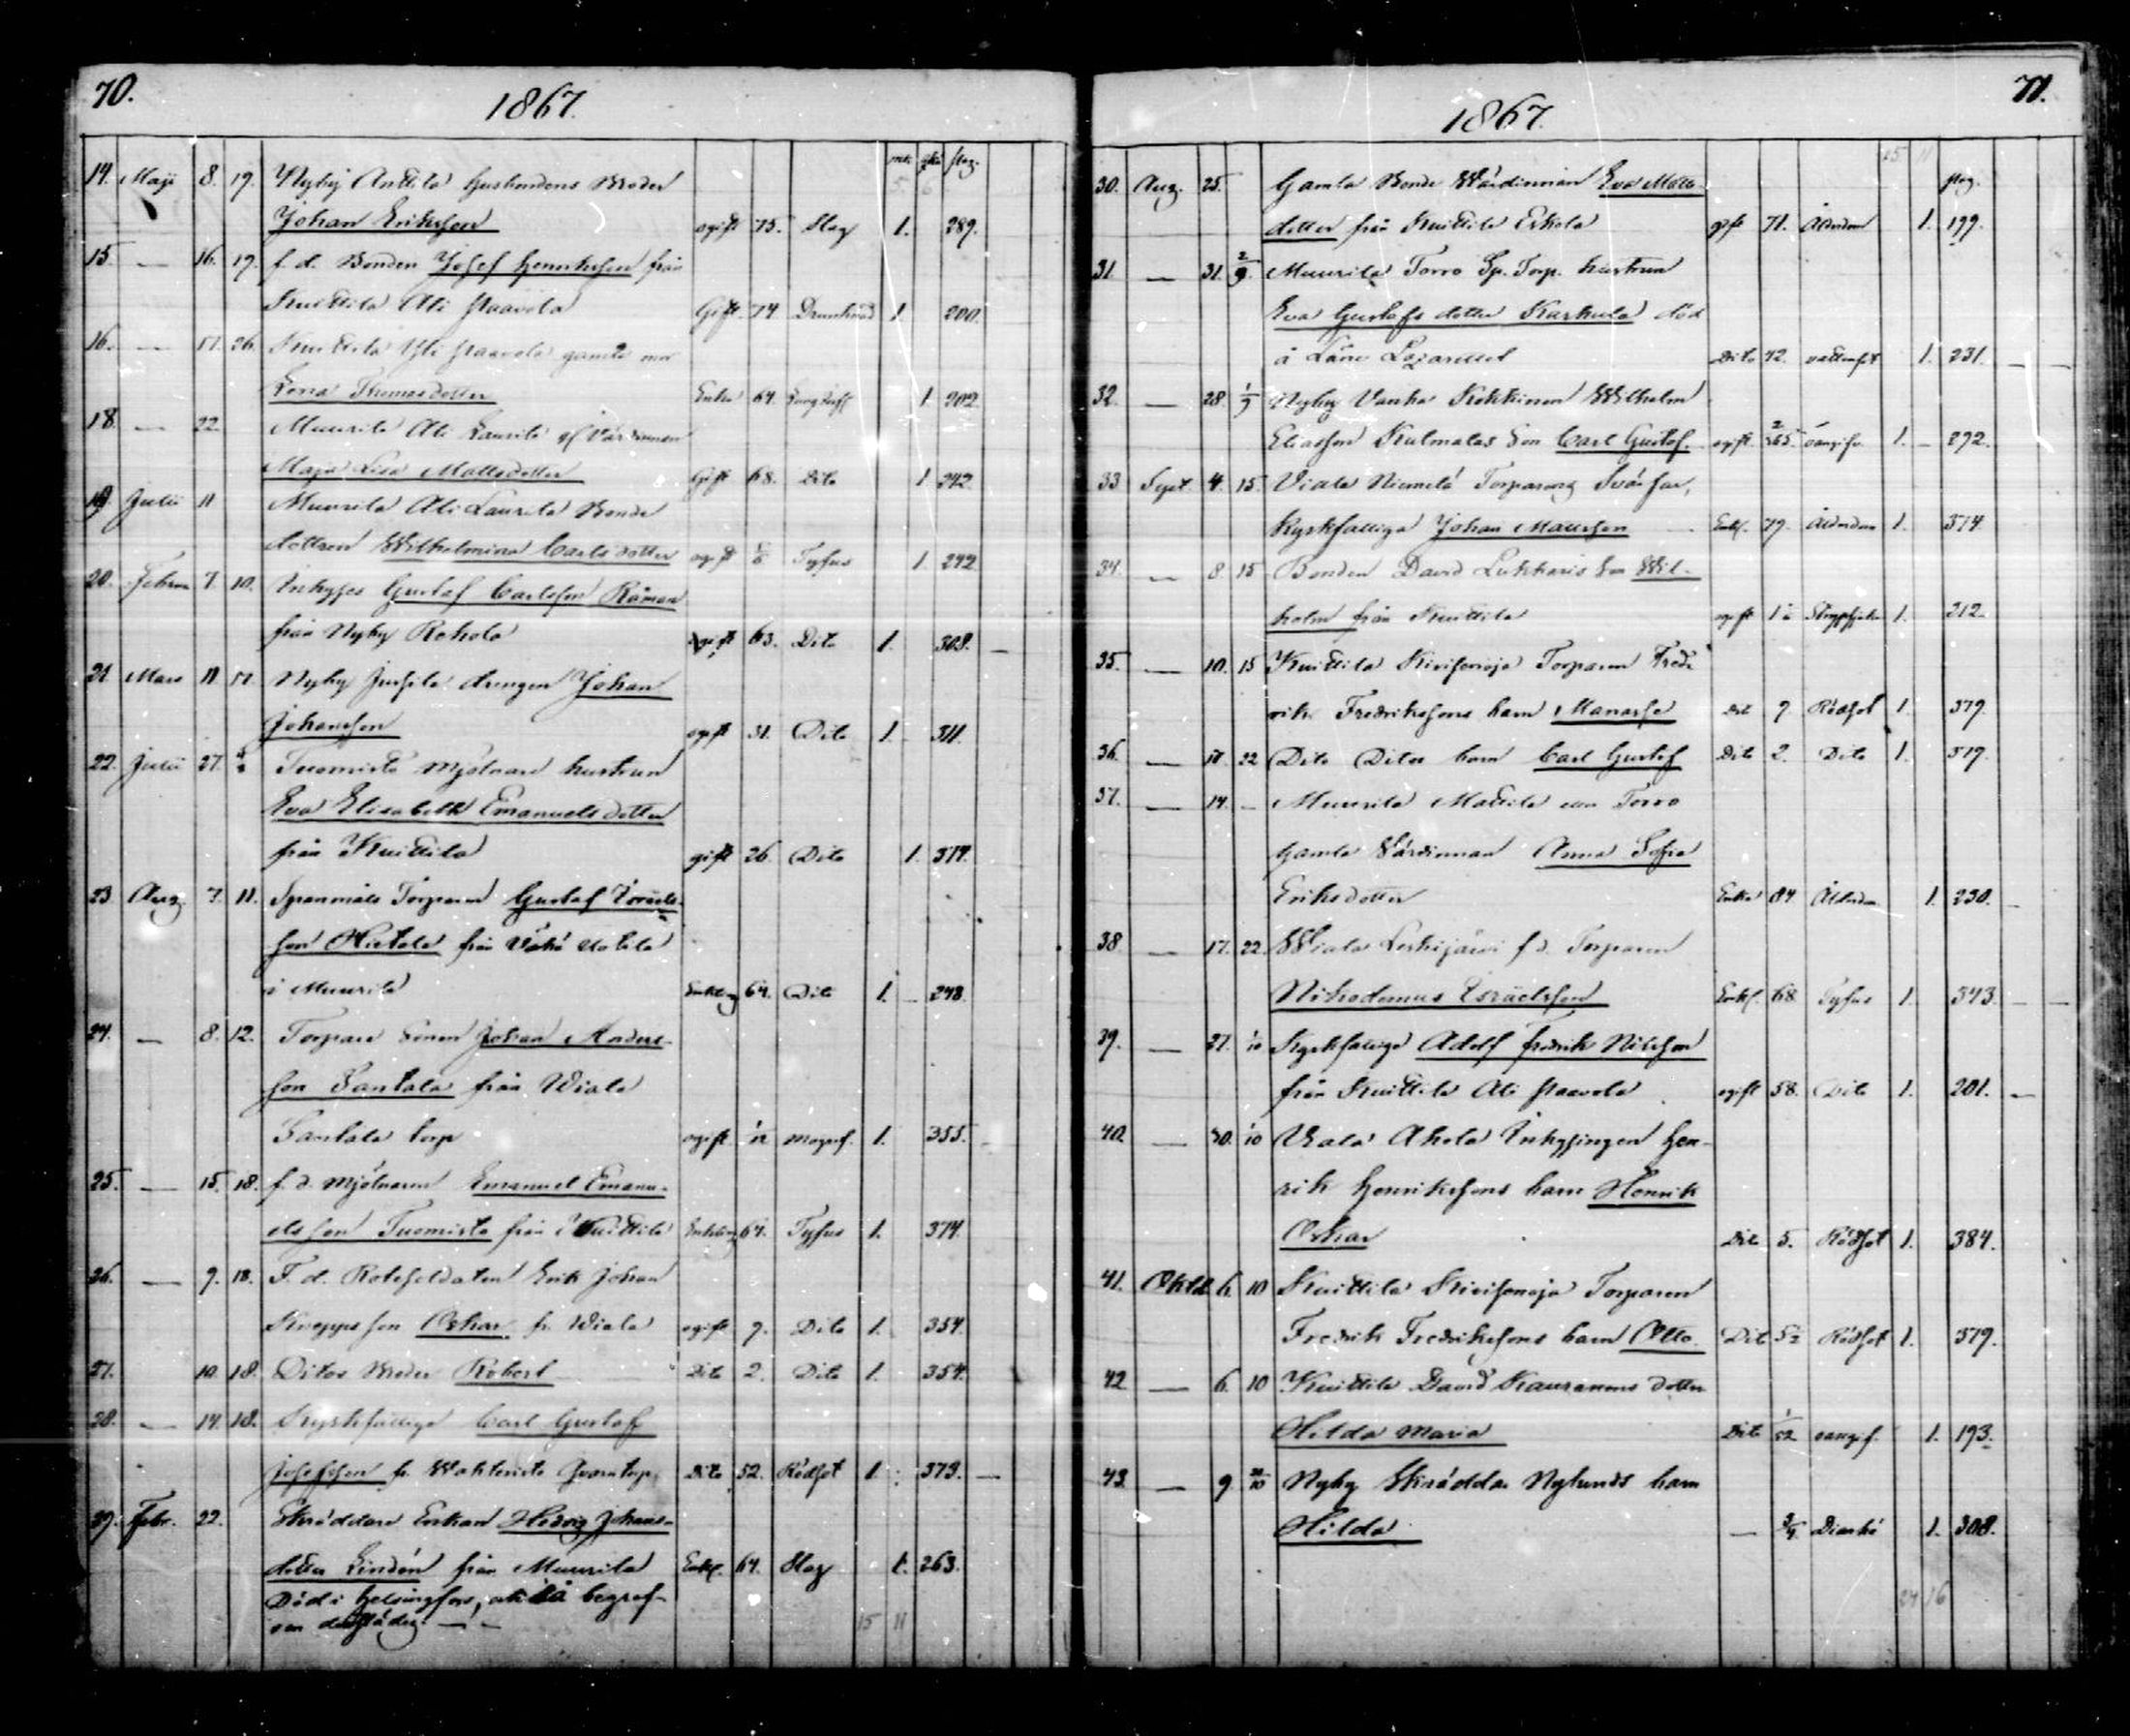 70.
1867.
mk. qk. pag.
14. Maji 8. 19. Nyby Anttila husbondens Broder
Johan Eriksson ogift 75. Slag 1. 289.
15. — 16. 19. f. d. Bonden Josef Henriksson från
Kuittila Ali Paavola Gift 74 1. 200.
16. — 17. 26. Kuittila Yli Paavola gamla
Lena Thomasdotter Enka 64. 1. 202.
18. — 22. Muurila Ali Laurila Värdinnan
Maja Lisa Mattsdotter Gift 68. Dito 1. 242.
19 Julii 11 Muurila Ali Laurila Bonde
dottren Wilhelmina Carlsdotter ogift Tyfus 1. 242
20. 7. 10. Inhyses Gustaf Carlsson Råman
från Nyby Rohola ogift 63. Dito 1. 308. —
21. Mars 11 17. Nyby Jussila drengen Johan
Johansson ogift 31. Dito 1. 311.
22. Julii 27. Tuomisto Mjölnare hustrun
Eva Elisabeth Emanuelsdotter
från Kuittila gift 26. Dito 1. 374.
23. Aug. 7. 11. Spanmåls Torparen Gustaf Israels-
son Hietala från Vähä Uotila
i Muurila Enkling 64. Dito 1. 248.
24. — 8. 12. Torpare Sonen Johan Anders-
son Santala från Wiala
Santala torp ogift 1. 355.
25. — 15. 18. f. d. Mjölnaren Emanuel Emanu-
elsson Tuomisto från Kuittila Enkling 64. Tyfus 1. 374.
26. — 9. 18. F. d. Rotesoldaten Erik Johan
son Oskar fr. Wiala ogift 9. Dito 1. 354.
27. 10. 18. Ditos Broder Robert Dito 2. Dito 1. 354.
28. — 14. 18. Kyrkfattige Carl Gustaf
Josefsson fr. Dito 52. Rödsot 1. 373. —
29. Febr. 22. Skräddare Enkan Hedvig Johans-
dotter Lindén från Muurila Enkl. 64. Slag 1. 263.
Död i Helsingfors, och då begraf-
ven
15 11
71.
1867.
15 11
pag.
30. Aug. 25. Gamla Bonde Wärdinnan Eva Matts-
dotter från Kuittila Erkola gift 71. Ålderdom 1. 199.
31. — 31. 2/9. Muurila Torro Sp. Torp. hustrun
Eva Gustafsdotter Karhula död
å Läns Lazarettet Dito 42. vattensot 1. 231. —
32. — 28. 1/9 Nyby Vanha Kokkinen Wilhelm
Eliasson Kulmalas Son Carl Gustaf ogift 2/365. oangifv. 1. — 292.
33 Sept. 4. 15. Viala Niemelä Torparens Svärfar,
Kyrkfattiga Johan Mattsson Enkl. 79. Ålderdom 1. 374
34. — 8 15 Bonden David Lukkaris Son Wil-
helm från Kuittila ogift Strypsjuka 1. 212.
35. — 10. 15 Kuittila Kivisenoja Torparen Fred-
rik Fredrikssons barn Manasse Dit 9. Rödsot 1. 379.
36. — 11. 22 Dito Ditos barn Carl Gustaf Dito 2. Dito 1. 379.
37. — 14. — Muurila Mattila Torro
Gamla Värdinnan Anna Sofia
Eriksdotter Enka 84. Ålderdom 1. 230. —
38. — 17. 22. Wiala Leskijärvi f. d. Torparen
Nikodemus Israelsson Enkl. 68 Tyfus 1. 343. —
39. — 27. 1/10 Kyrkfattige Adolf Fredrik Nilsson
från Kuittila Ali Paavola ogift 58. Dito 1. 201. —
40. — 30. 1/10 Ahola Inhysingen Hen-
rik Henrikssons barn Henrik
Oskar Dit. 5. Rödsot 1. 384.
41. Oktob 6. 10 Kuittila Kivisenoja Torparen
Fredrik Fredrikssons barn Otto Dit Rödsot 1. 379.
42 — 6. 10 Kuittila David Kauranens dotter
Hilda Maria Dito 1/52 oangif. 1. 193.
43. — 9 Nyby Skräddar Nylunds barn
Hilda — 3/4 1. 308.
24 16